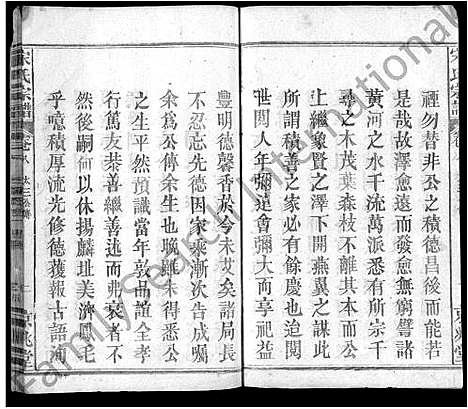 宋氏宗譜
禋勿替非公之積德昌後而能若
是哉故澤愈遠而發愈無窮譬諸
黃河之水千流萬派悉有所宗千
尋之木茂葉森枝不離其本公之
上繼象賢之澤下開燕翼之謀其
積善之家必有餘慶也迨閱
世閱人年彌遒會彌大而享祀益
豐明德馨香於今未艾矣諸局長
不忍忘先德因家乘漸次告成囑
余爲公傳余生也晚雖未得悉公
之生平然預識當年敦品誼全孝
行篤友恭善繼善述而弗衰也不
然後嗣何以休揚麟趾美濟鳳毛
乎噫積厚流光修德獲報古語河
宋氏宗譜
京兆堂
FamilySearch International